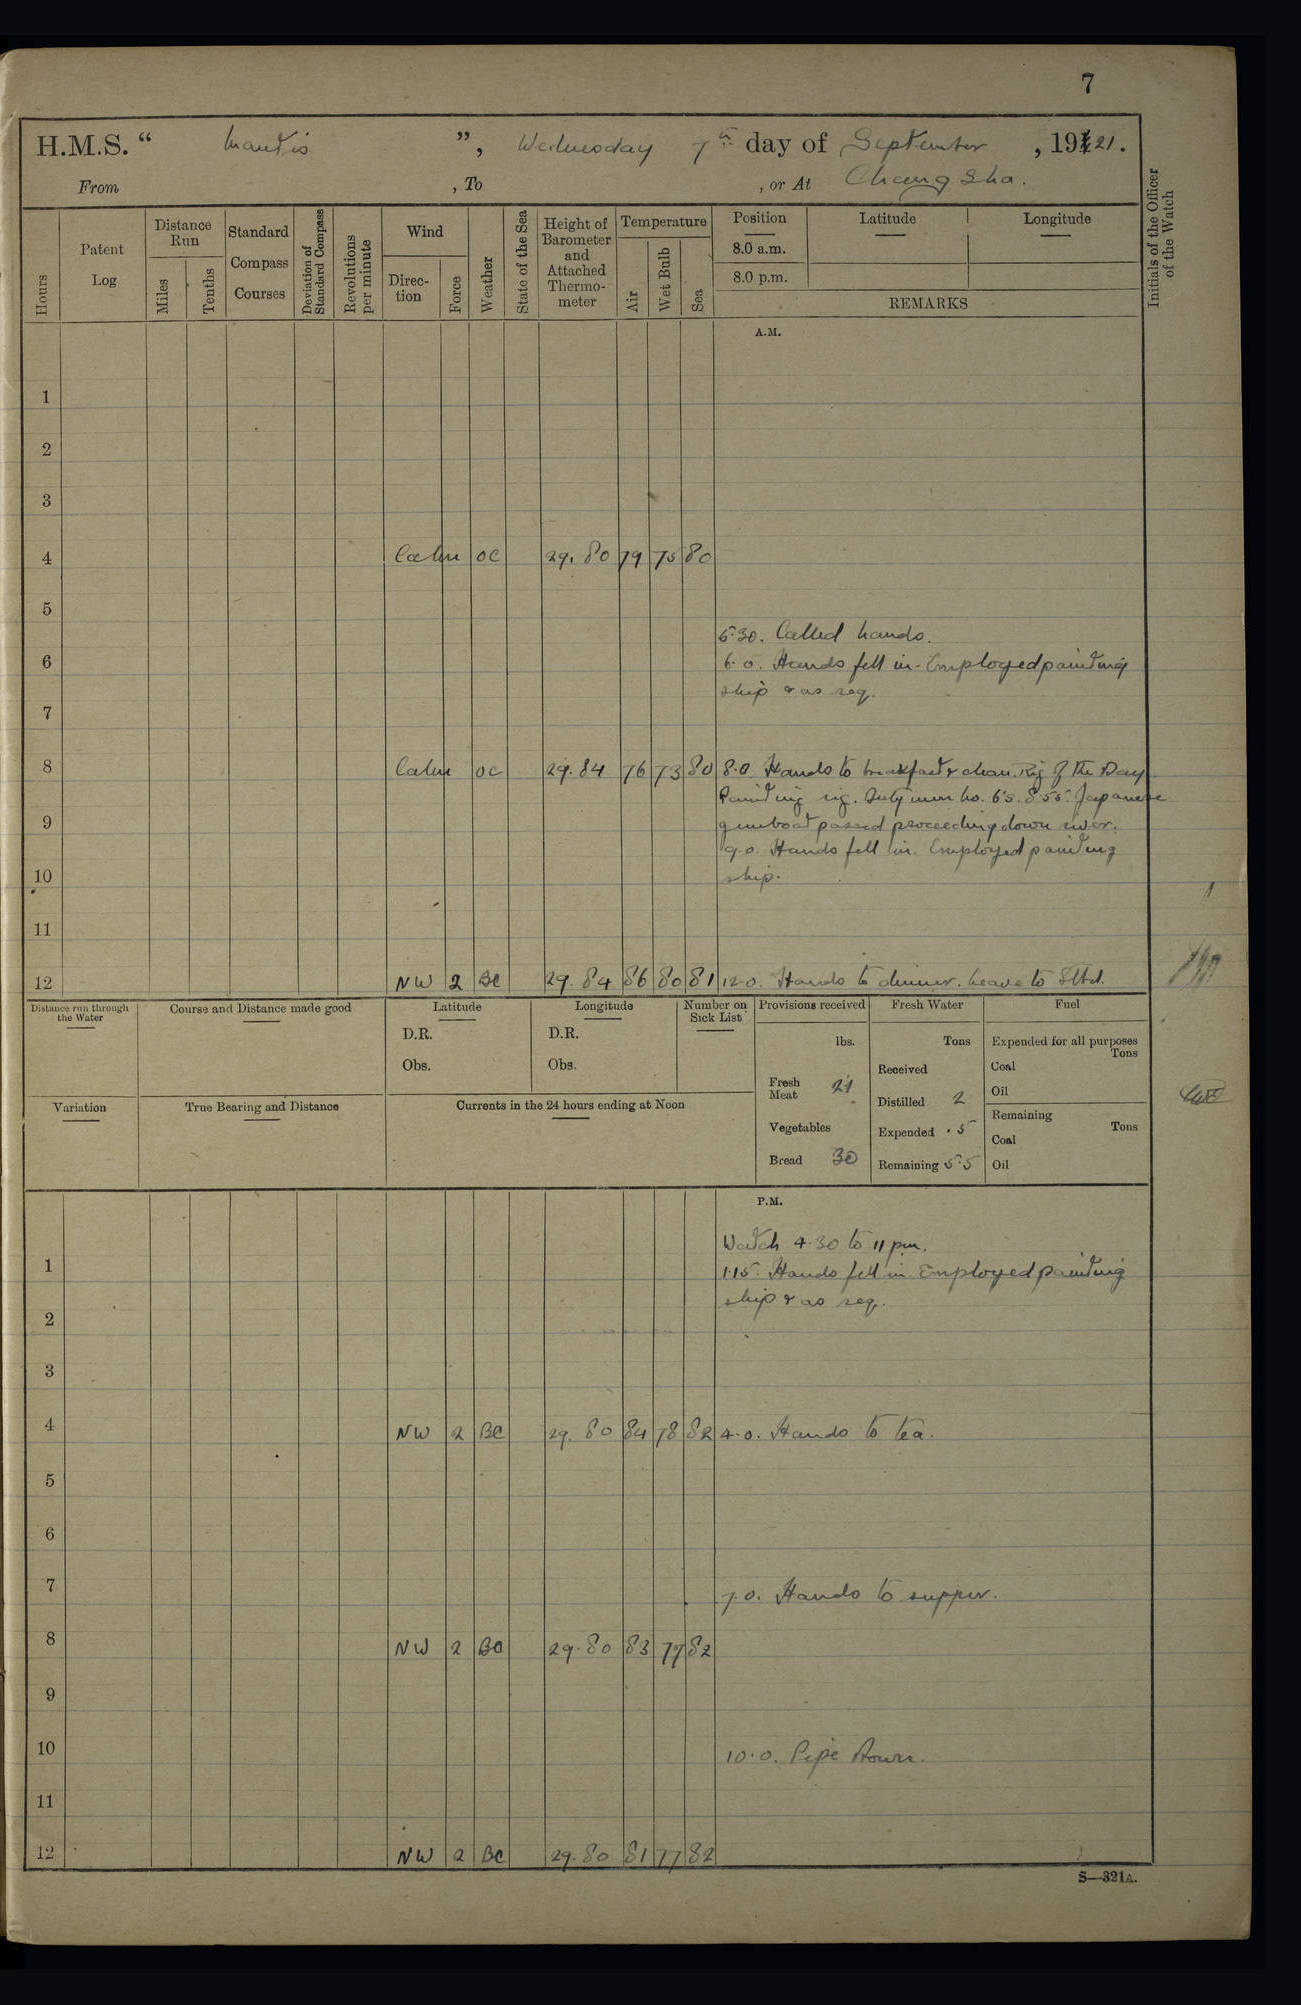 7
H.M.S. “ Mantis ”, Wednesday 7th day of September, 1921.
From , To , or At Changsha.
Hours
Patent Log
Distance Run
Miles
Tenths
Standard Compass Courses
Deviation of Standard Compass
Revolutions per minute
Wind
Direction
Force
Weather
State of the Sea
Height of Barometer and Attached Thermometer
Temperature
Air
Wet Bulb
Sea
Position Latitude Longitude
8.0 a.m.
8.0 p.m.
REMARKS
Initials of the Officer of the Watch
A.M.
1
2
3
4 Calm OC 29.80 79 75 80
5
5.30. Called hands.
6 6.0. Hands fell in. Employed painting
ship & as req.
7
8 Calm OC 29.84 76 73 80 8.0 Hands to breakfast & clean. Rig of the Day
Painting rig. 6's. 8.55. Japanese
9 gunboat passed proceeding down river.
9.0. Hands fell in. Employed painting
10 ship.
11
12 NW 2 BC 29.84 86 80 81 12.0. Hands to dinner. Leave to Stbd.
Distance run through the Water
Course and Distance made good
Latitude
D.R.
Obs.
Longitude
D.R.
Obs.
Number on Sick List
Provisions received
lbs.
Fresh Meat 21
Vegetables
Bread 30
Fresh Water
Tons
Received
Distilled 2
Expended .5
Remaining 5.5
Fuel
Expended for all purposes
Tons
Coal
Oil
Remaining
Tons
Coal
Oil
Variation
True Bearing and Distance
Currents in the 24 hours ending at Noon
P.M.
Watch 4.30 to 11 pm.
1 1.15. Hands fell in. Employed painting
ship & as req.
2
3
4 NW 2 BC 29.80 84 78 82 4.0. Hands to tea.
5
6
7 7.0. Hands to supper.
8 NW 2 BC 29.80 83 77 82
9
10 10.0. Pipe down.
11
12 NW 2 BC 29.80 81 77 82
S—321A.